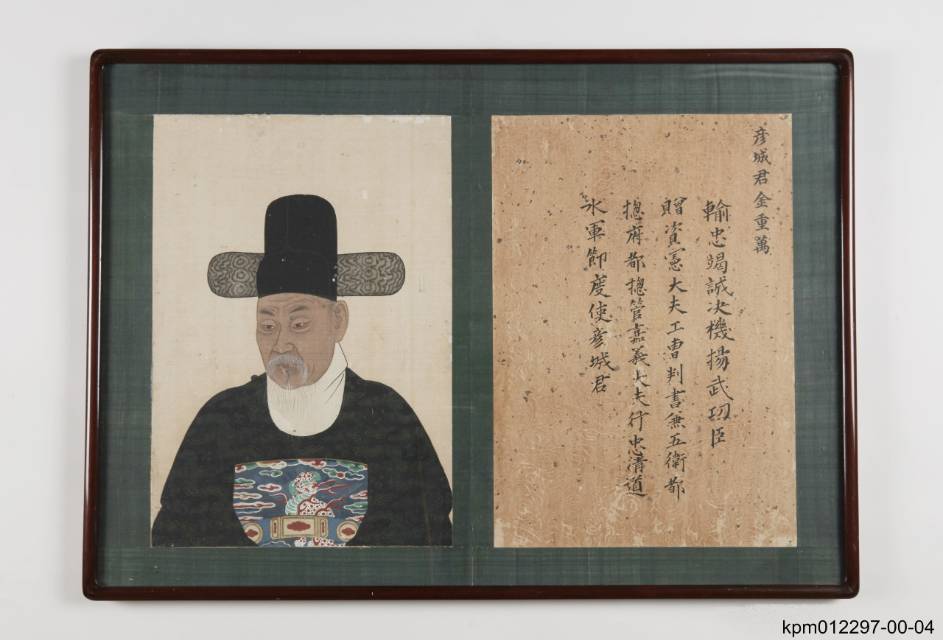 彦城君金重萬
輸忠竭誠决機揚武功臣
贈資憲大夫工曹判書兼五衛都
摠府都摠管嘉義大夫行忠淸道
水軍節度使彦城君
kpm012297-00-04